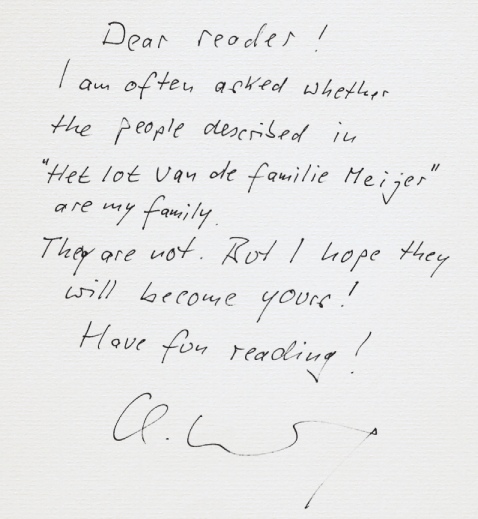 Dear reader!
I am often asked whether
the people described in
"Het lot van de familie Meijer"
are my family.
They are not. But I hope they
will become yours!
Have fun reading!